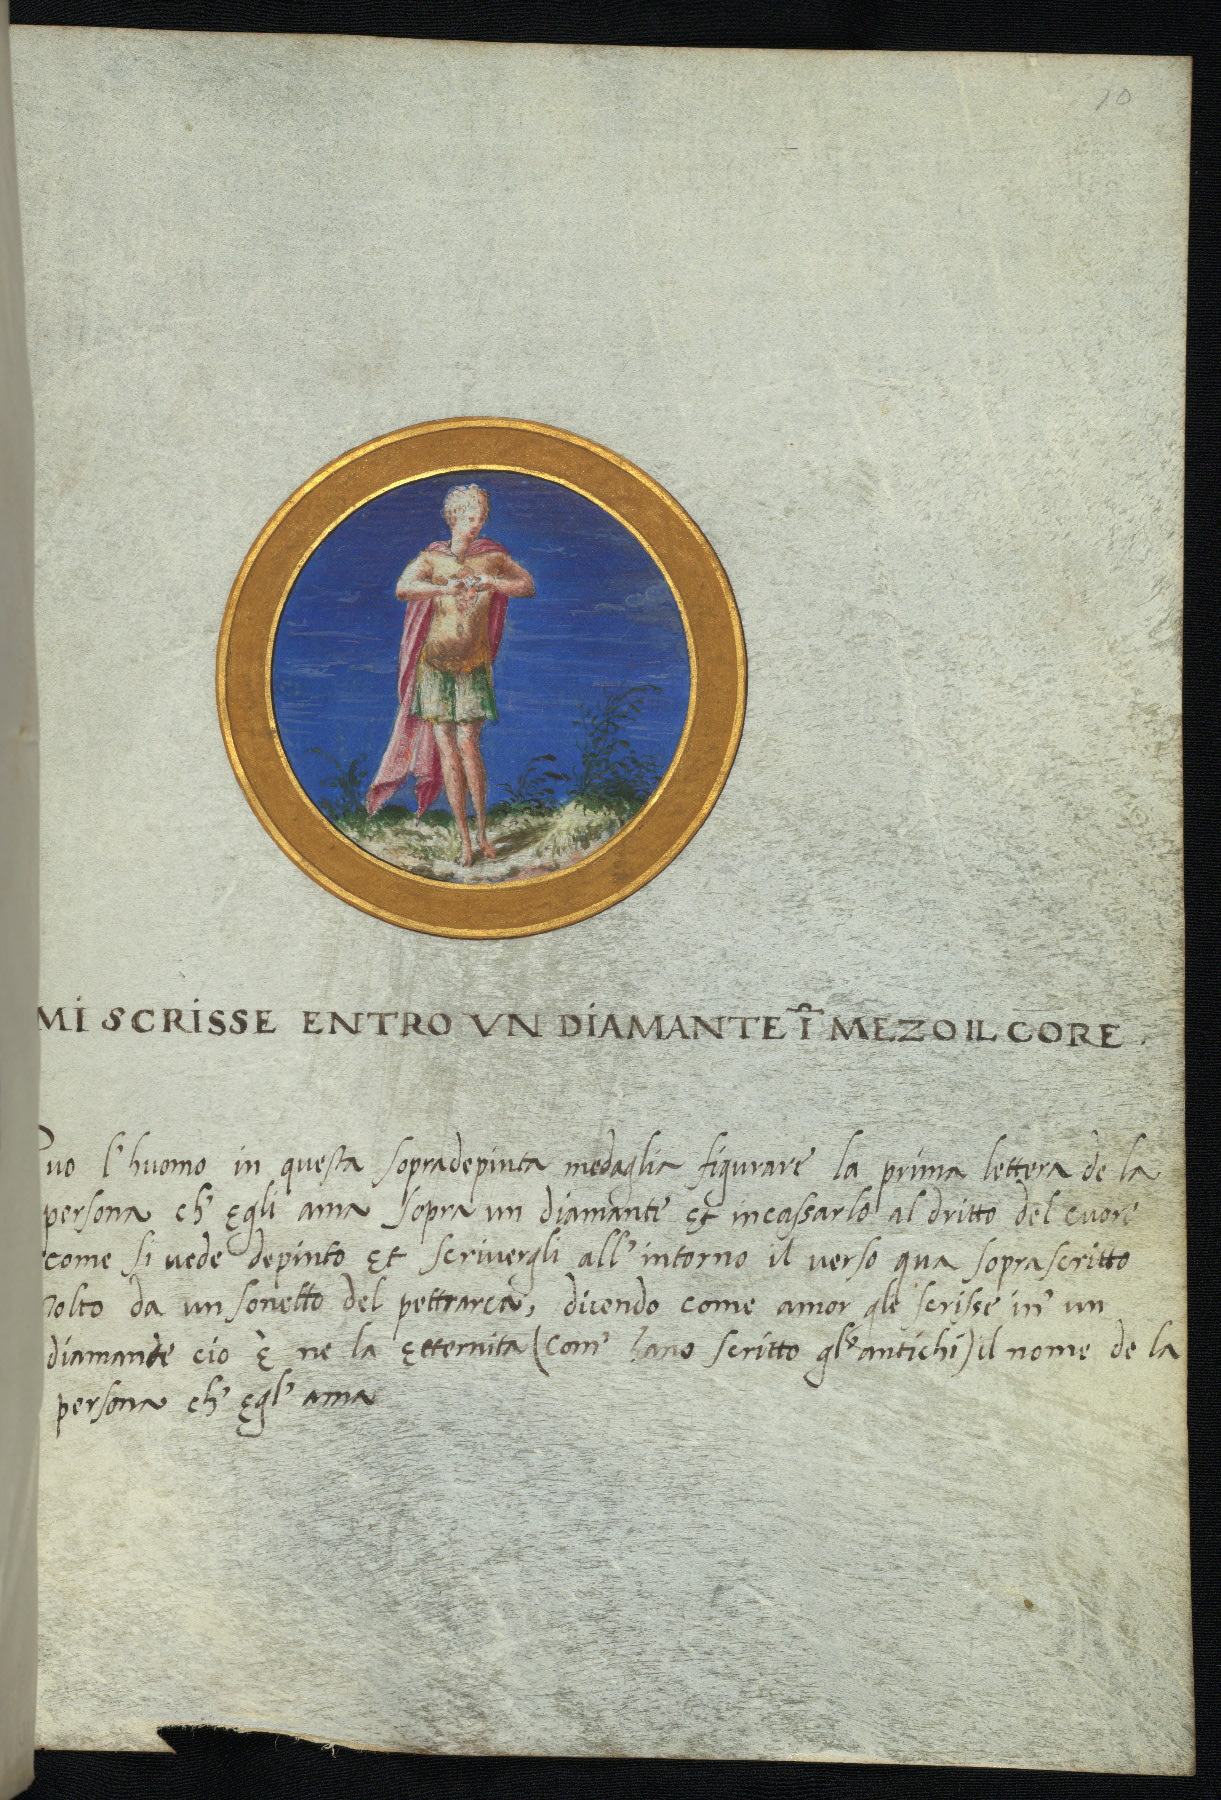 10
MI SCRISSE ENTRO VN DIAMANTE Ī MEZO IL CORE.
Puo l'huomo in questa sopradepinta medaglia figurare la prima lettera de la
persona ch' egli ama sopra un diamante et incassarlo al dritto del cuore
come si vede depinto et scrivergli all'intorno il verso qua soprascritto
tolto da un sonetto del pettrarca, dicendo come amor gle scrisse in un
diamante cio è ne la etternita (com' hano scritto gl'antichi) il nome de la
persona ch' egl' ama